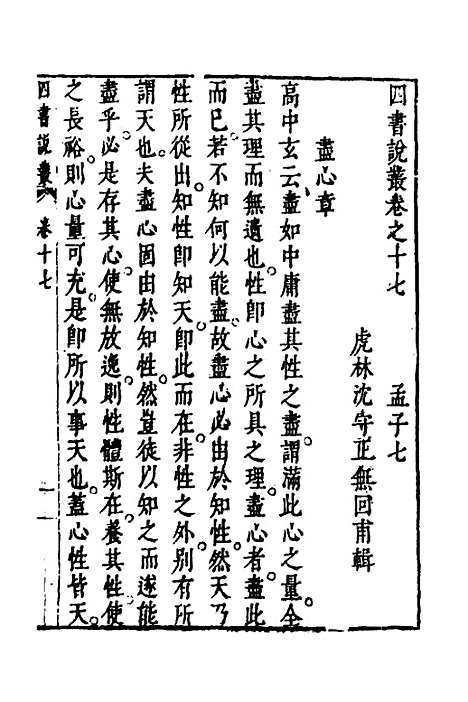 四書說叢卷之十七　　孟子七
虎林沈守正無回甫輯
盡心章
高中玄云盡如中庸盡其性之盡謂滿此心之量全
盡其理而無遺也性卽心之所具之理盡心者盡此
而已若不知何以能盡故盡心必由於知性然天乃
性所從出知性卽知天卽此而在非性之外別有所
謂天也夫盡心固由於知性然豈徒以知之而遂能
盡乎必是存其心使無放逸則性體斯在養其性使
之長裕則心量可充是卽所以事天也蓋心性皆天
四書說叢　卷十七　一